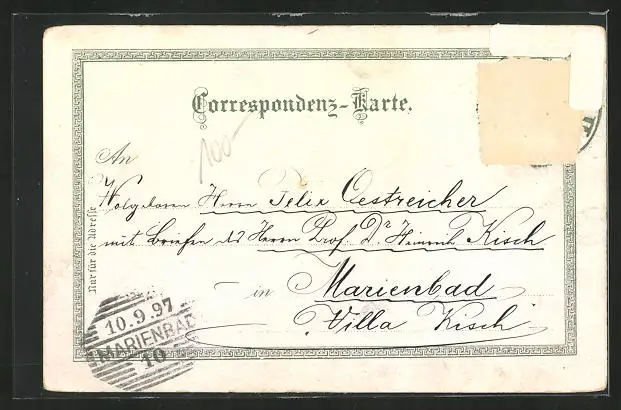 Correspondenz-Karte.
100-
An
Wolgeboren Herrn Felix Oestreicher
mit Briefen des Herrn Prof. Dr Heinrich Kisch
- in Marienbad
Villa Kisch
Nur für die Adresse
10.9.97
MARIENBAD
10